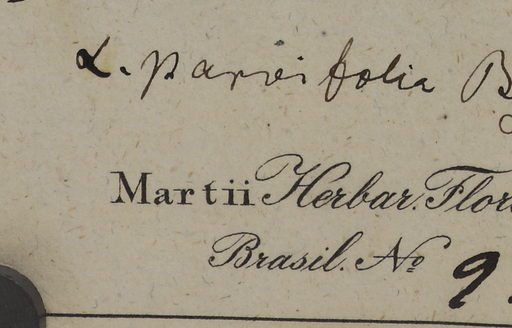 α. parvifolia B
Martii Herbar. Flor
Brasil. No 9